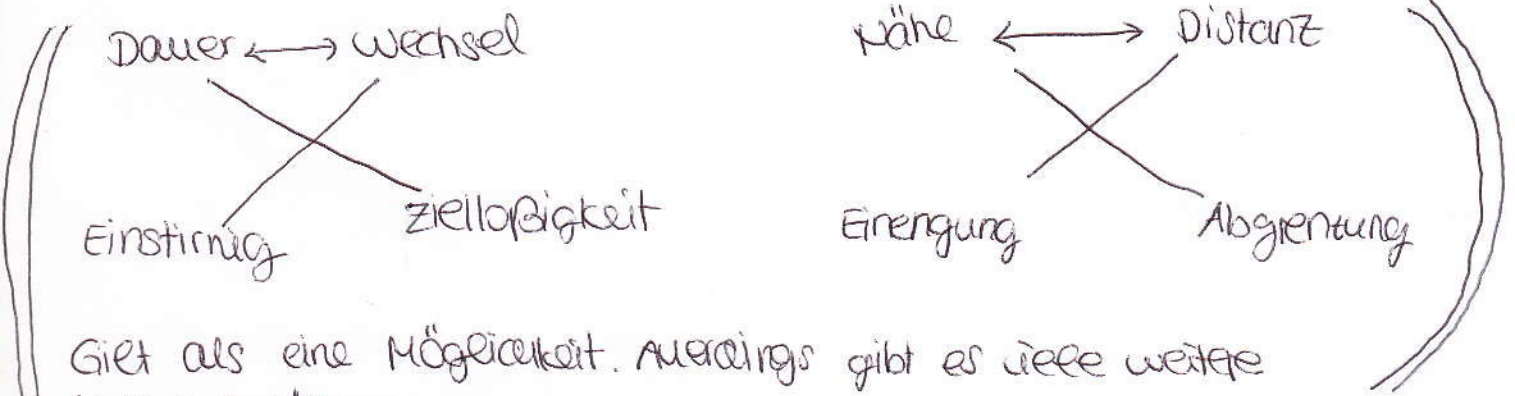 Dauer ↔ Wechsel
Nähe ↔ Distanz
Einstirnig
Zielloßigkeit
Einengung
Abgrenzung
Gilt als eine Möglichkeit. Allerdings gibt es viele weitere